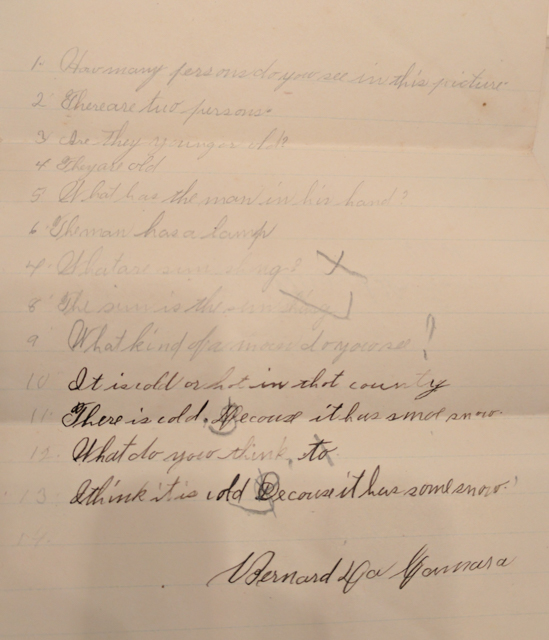 1. How many persons do you see in this picture
2. There are two persons
3. Are they younger old?
4. They are old
5. What has the man in his hand?
6. The man has a lamp
4. What are
8. The sun is the
9. What kind of a do you see!
10 It is coll or hot in that county
11. There is cold. Because it has smoe snow.
12. What do you think. to
13. I think it is cold Because it has some snow.
14.
Bernard